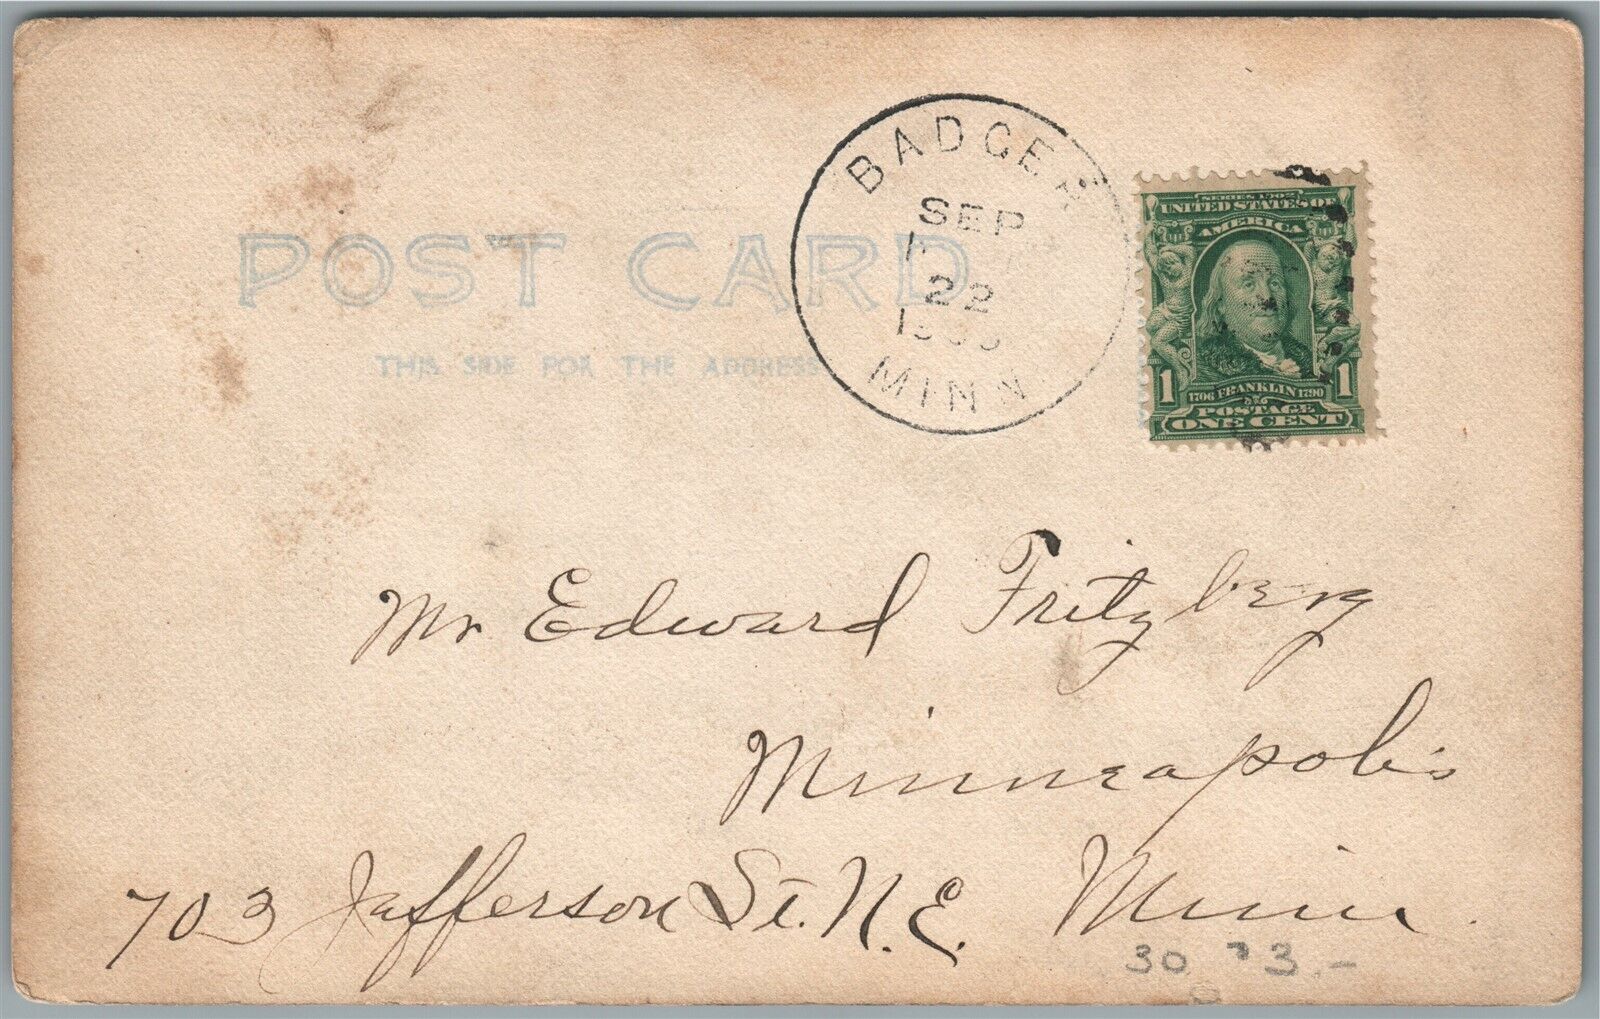 BADGER
SEP
22
MINN
POST CARD
THIS SIDE FOR THE ADDRESS
SERIES 1902
UNITED STATES OF
AMERICA
1 1706 FRANKLIN 1790 1
POSTAGE
ONE CENT
Mr Edward Fritzberg
Minneapolis
703 Jefferson St. N.E. Minn.
30 3.-